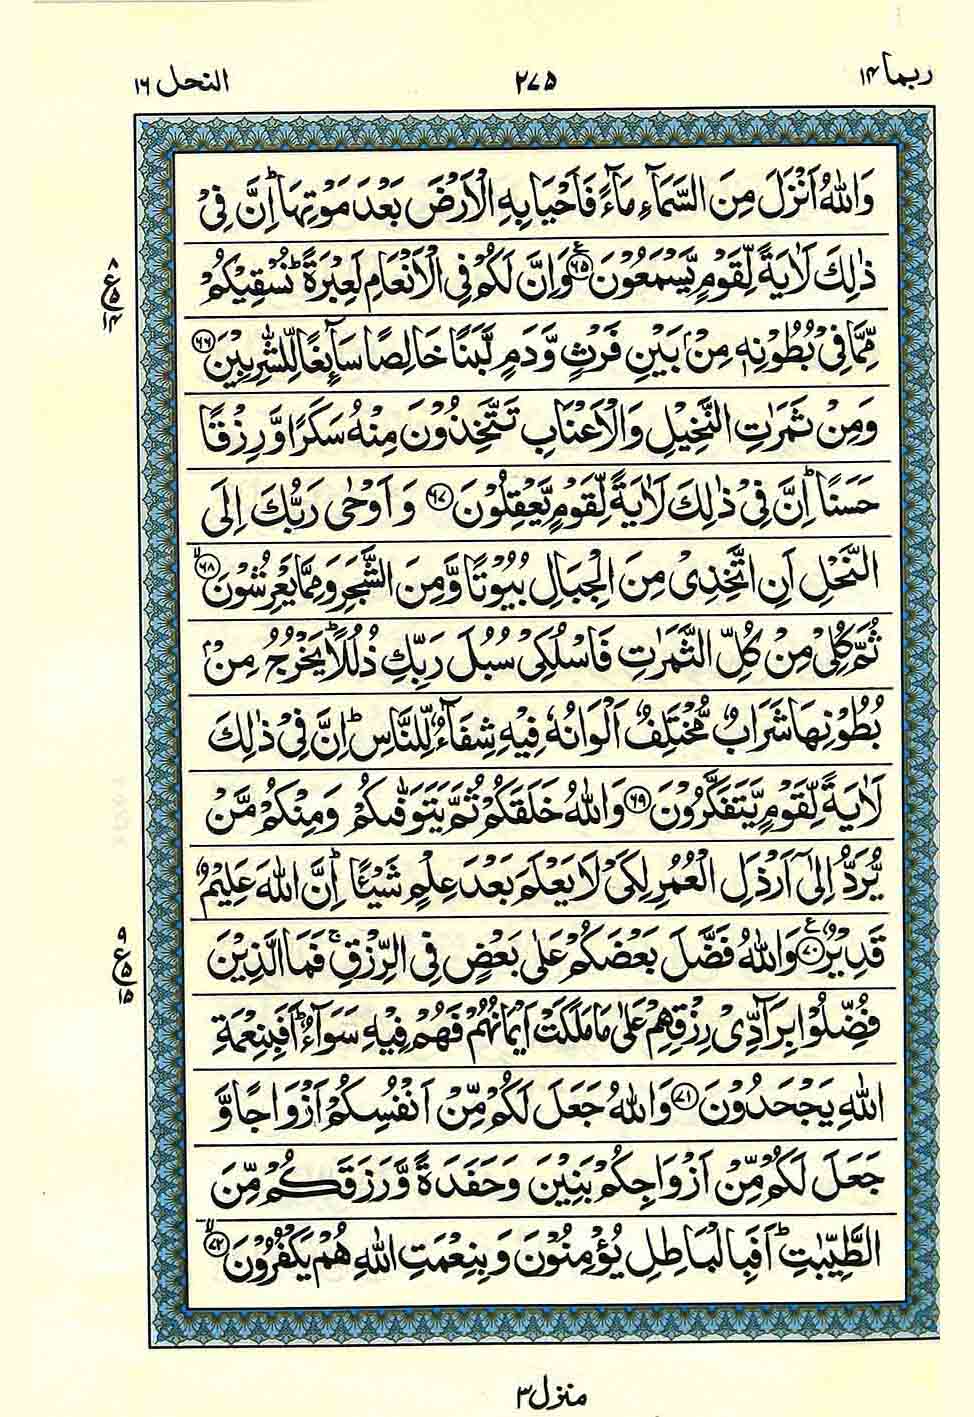 ربما ١٤
٢٧٥
النحل ١٦
وَاللّٰهُ اَنْزَلَ مِنَ السَّمَآءِ مَآءً فَاَحْيَا بِهِ الْاَرْضَ بَعْدَ مَوْتِهَا ؕ اِنَّ فِيْ
ذٰلِكَ لَاٰيَةً لِّقَوْمٍ يَّسْمَعُوْنَ ﴿٦٥﴾ ع وَاِنَّ لَكُمْ فِي الْاَنْعَامِ لَعِبْرَةً ؕ نُسْقِيْكُمْ
٨
ع ٥
١٤
مِّمَّا فِيْ بُطُوْنِهٖ مِنْۢ بَيْنِ فَرْثٍ وَّدَمٍ لَّبَنًا خَالِصًا سَآئِغًا لِّلشّٰرِبِيْنَ ﴿٦٦﴾
وَمِنْ ثَمَرٰتِ النَّخِيْلِ وَالْاَعْنَابِ تَتَّخِذُوْنَ مِنْهُ سَكَرًا وَّرِزْقًا
حَسَنًا ؕ اِنَّ فِيْ ذٰلِكَ لَاٰيَةً لِّقَوْمٍ يَّعْقِلُوْنَ ﴿٦٧﴾ وَاَوْحٰى رَبُّكَ اِلَى
النَّحْلِ اَنِ اتَّخِذِيْ مِنَ الْجِبَالِ بُيُوْتًا وَّمِنَ الشَّجَرِ وَمِمَّا يَعْرِشُوْنَ ﴿٦٨﴾ۙ
ثُمَّ كُلِيْ مِنْ كُلِّ الثَّمَرٰتِ فَاسْلُكِيْ سُبُلَ رَبِّكِ ذُلُلًا ؕ يَخْرُجُ مِنْۢ
بُطُوْنِهَا شَرَابٌ مُّخْتَلِفٌ اَلْوَانُهٗ فِيْهِ شِفَآءٌ لِّلنَّاسِ ؕ اِنَّ فِيْ ذٰلِكَ
لَاٰيَةً لِّقَوْمٍ يَّتَفَكَّرُوْنَ ﴿٦٩﴾ وَاللّٰهُ خَلَقَكُمْ ثُمَّ يَتَوَفّٰىكُمْ وَمِنْكُمْ مَّنْ
يُّرَدُّ اِلٰٓى اَرْذَلِ الْعُمُرِ لِكَيْ لَا يَعْلَمَ بَعْدَ عِلْمٍ شَيْـًٔا ؕ اِنَّ اللّٰهَ عَلِيْمٌ
قَدِيْرٌ ﴿٧٠﴾ ع وَاللّٰهُ فَضَّلَ بَعْضَكُمْ عَلٰى بَعْضٍ فِي الرِّزْقِ ۚ فَمَا الَّذِيْنَ
٩
ع ٥
١٥
فُضِّلُوْا بِرَآدِّيْ رِزْقِهِمْ عَلٰى مَا مَلَكَتْ اَيْمَانُهُمْ فَهُمْ فِيْهِ سَوَآءٌ ؕ اَفَبِنِعْمَةِ
اللّٰهِ يَجْحَدُوْنَ ﴿٧١﴾ وَاللّٰهُ جَعَلَ لَكُمْ مِّنْ اَنْفُسِكُمْ اَزْوَاجًا وَّ
جَعَلَ لَكُمْ مِّنْ اَزْوَاجِكُمْ بَنِيْنَ وَحَفَدَةً وَّرَزَقَكُمْ مِّنَ
الطَّيِّبٰتِ ؕ اَفَبِالْبَاطِلِ يُؤْمِنُوْنَ وَبِنِعْمَتِ اللّٰهِ هُمْ يَكْفُرُوْنَ ﴿٧٢﴾ۙ
منزل ٣